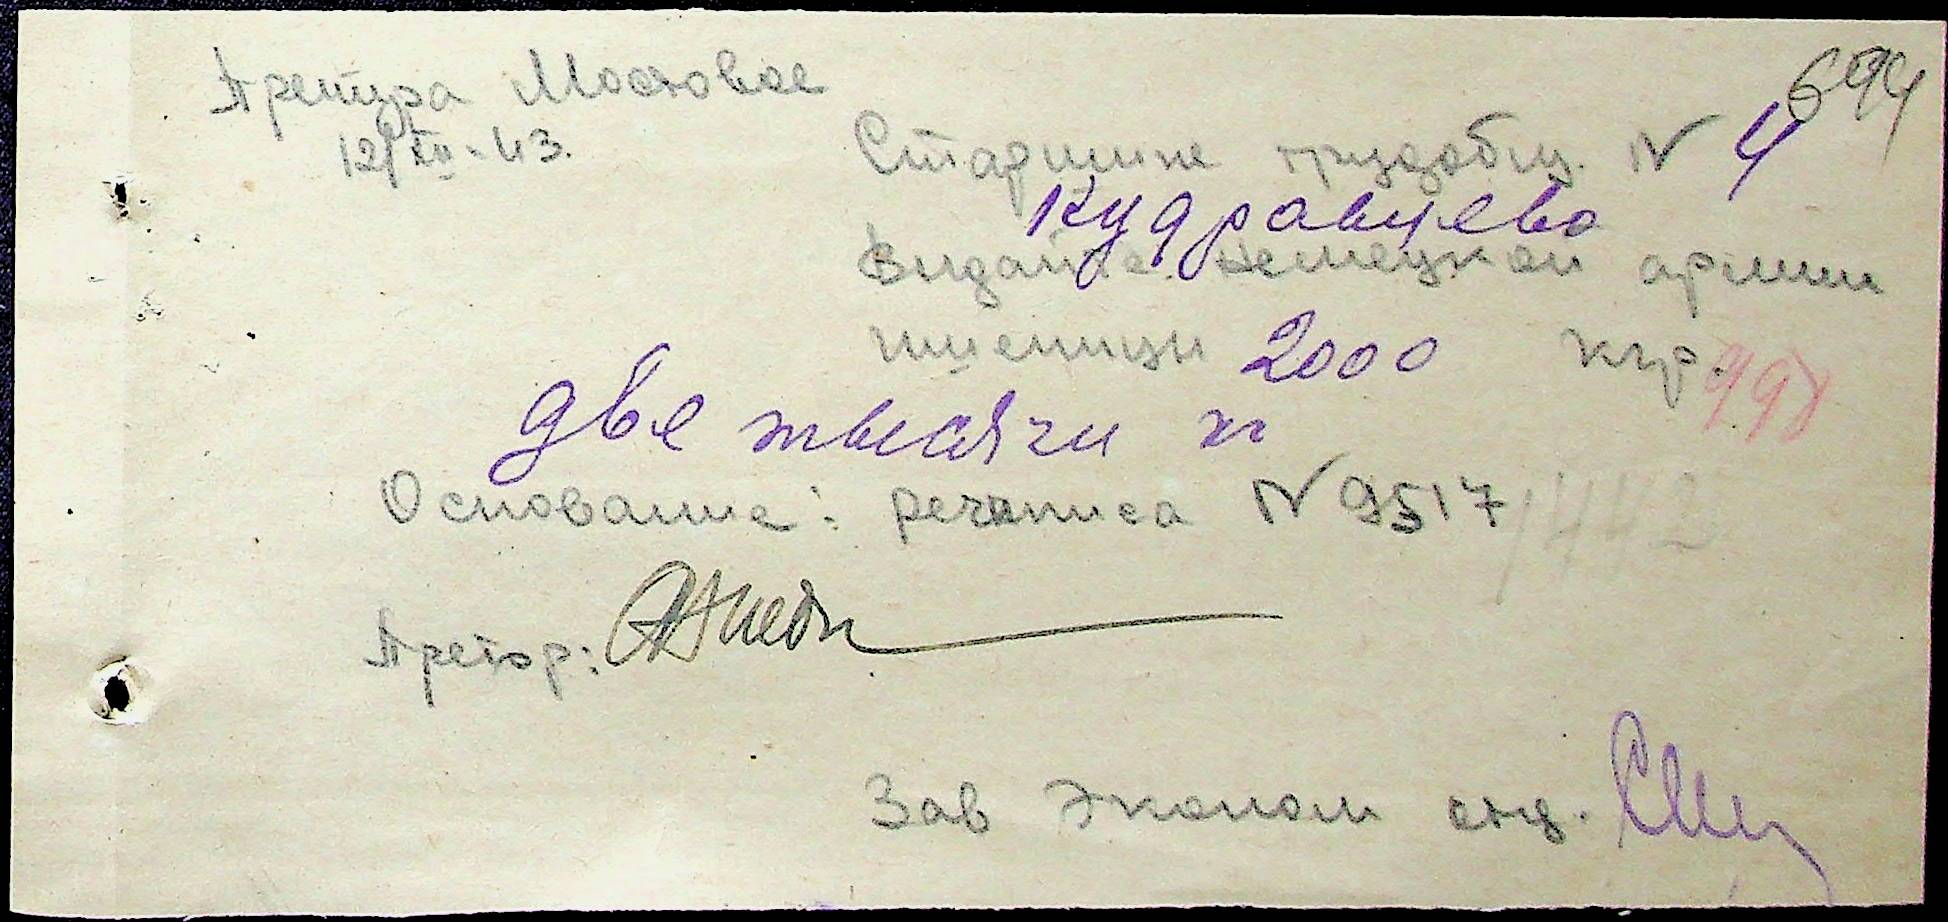 Претура Мостовое
694
12/XII-43.
Старшине трудобщ. N 4
Кудравцево
Видайте немецкой армии
пшеници 2000 кгр.
998
две тысячи кг
Основание: речиписа N 9517
1442
Претор:
Зав Эконом отд.